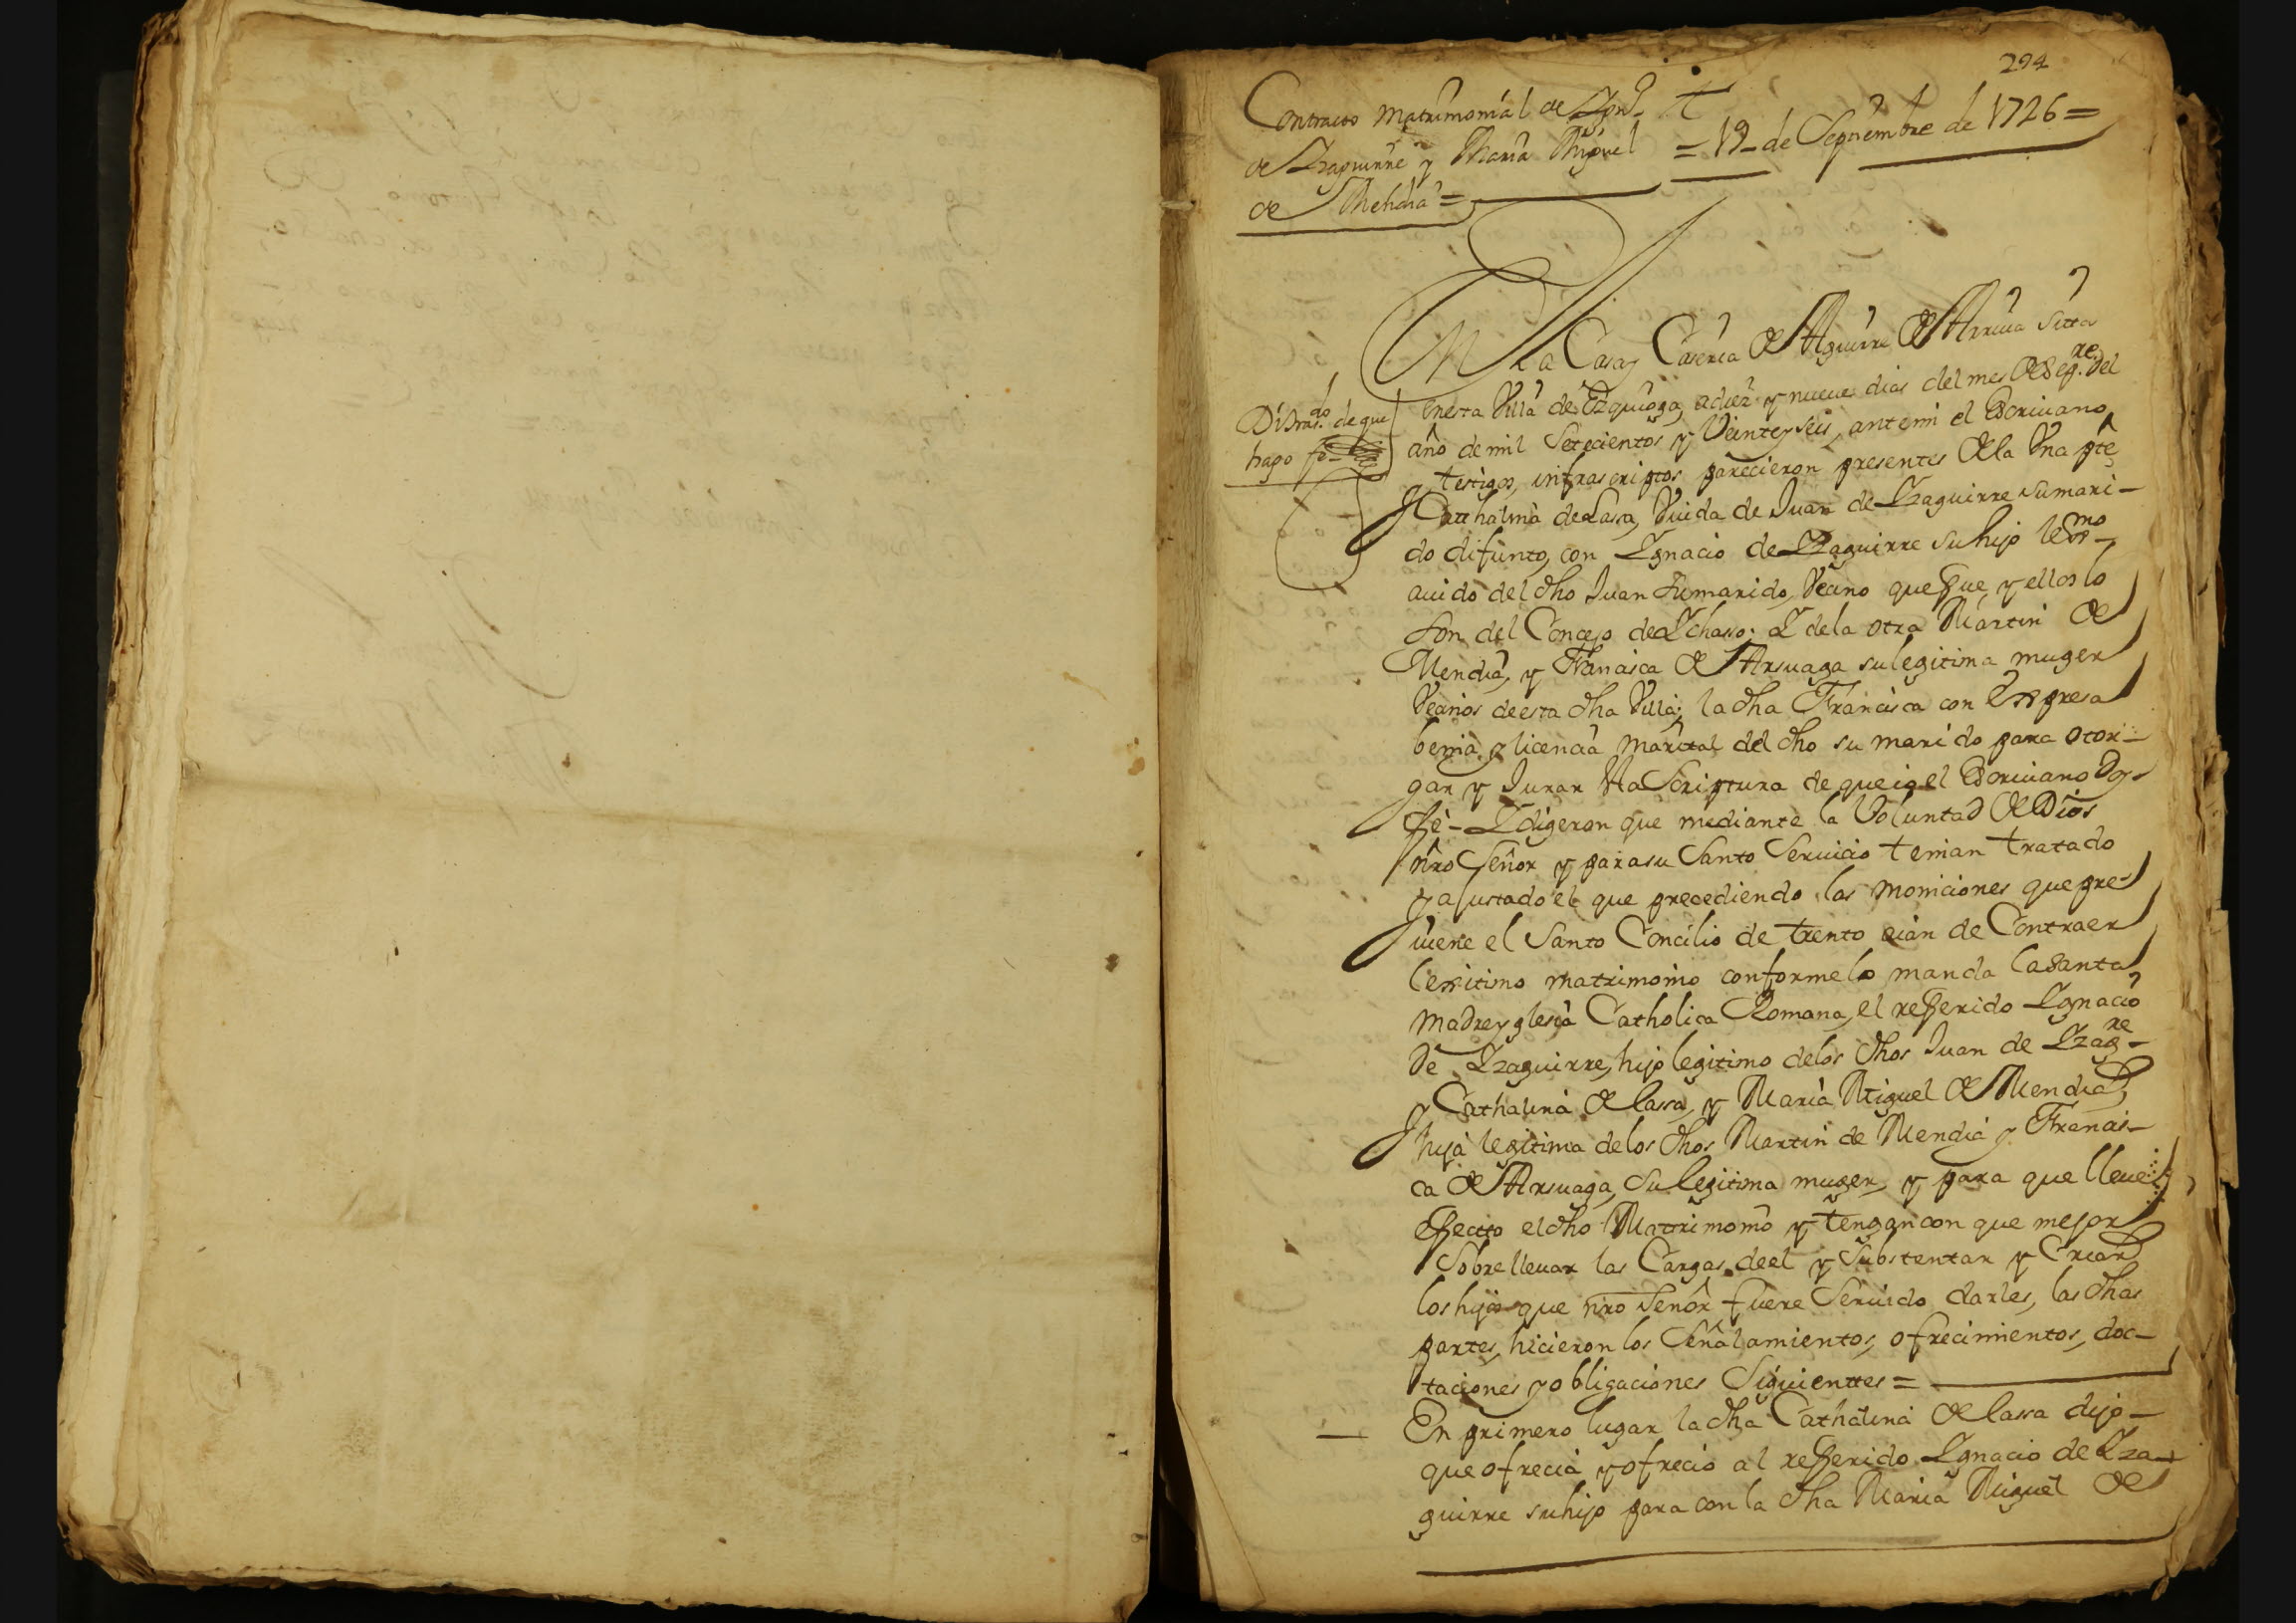 294
Contracto Matrimonial de Ign.º
de Yzaguirre y Maria Miguel
de Mendia =
= 19 de Septiembre de 1726 =
En la Casa y Caseria de Aguirre de Arriua sitta
en esta Villa de Ezquioga, a diez y nueue dias del mes de Sep.re del
año de mil Setecientos y Veinte y seis, ante mi el Escriuano
y testigos infrascriptos parecieron presentes de la Vna pte
Catthalina de Lasa, Viuda de Juan de Yzaguirre su mari-
do difunto, con Ygnacio de Yzaguirre su hijo legmo
auido del dho Juan su marido, Vecino que fue, y ellos lo
son del Concejo de Ychaso; Y de la otra Martin de
Mendia, y Francisca de Arsuaga su legitima muger
Vecinos de esta dha Villa; la dha Francisca con Expresa
benia y licencia marital del dho su marido para otor-
gar y Jurar sta Scriptura de que io el Escriuano Doy
fè - Y digeron que mediante la Voluntad de Dios
nro Señor y para su Santo Seruicio tenian tratado
y ajustado el que precediendo las moniciones que pre-
uiene el Santo Concilio de trento aian de Contraer
lexitimo matrimonio conforme lo manda la Santa
Madre yglesia Catholica Romana, el refferido Ygnacio
de Yzaguirre, hijo legitimo de los dhos Juan de Yzag.re
y Cathalina de lasa, y Maria Miguel de Mendia,
hija legitima de los dhos Martin de Mendia y Francis-
ca de Arsuaga, su legitima muger, y para que lleue
effectto el dho Matrimonio y tengan con que mejor
sobrelleuar las Cargas de el y Substentar y Criar
los hijos que nro Señor fuere Seruido darles, las dhas
partes, hicieron los Señalamientos, ofrecimientos, doc-
taciones y obligaciones Siguienttes =
En primero lugar la dha Cathalina de lasa dijo
que ofrecia y ofrecio al refferido Ygnacio de Yza-
guirre su hijo para con la dha Maria Miguel de
Di tras.do de que
hago fe